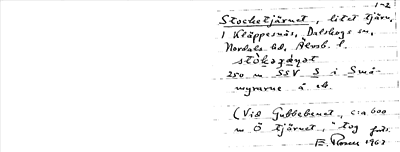 1-2
Stocketjärnet, litet tjärn,
i Kläppesnäs, Dalskogs sn,
Nordals hd, Älvsb. l.
250 m SSV S i Små-
myrarne å eb.
(Vid Gubbebenet, c:a 600
m Ö tjärnet, "tog
E. Rosell 1963